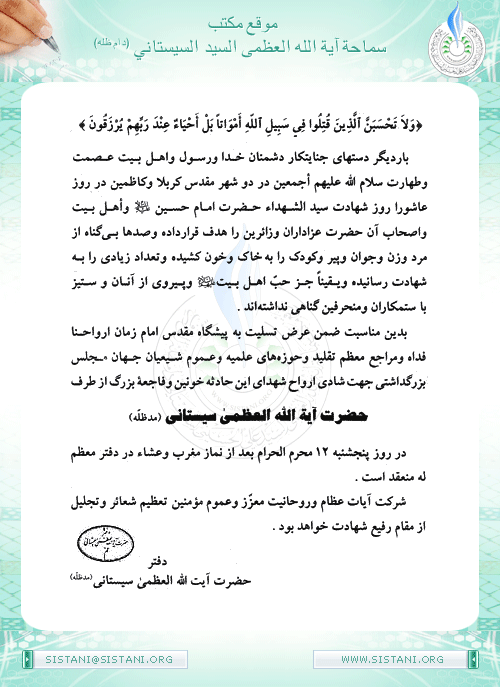 موقع مكتب
سماحة آية الله العظمى السيد السيستاني (دام ظله)
﴿وَلاَ تَحْسَبَنَّ الَّذِينَ قُتِلُوا فِي سَبِيلِ اللّهِ أَمْوَاتاً بَلْ أَحْيَاءٌ عِندَ رَبِّهِمْ يُرْزَقُونَ﴾
باردیگر دستهای جنایتکار دشمنان خدا ورسول واهل بیت عصمت
وطهارت سلام الله علیهم أجمعین در دو شهر مقدس کربلا وکاظمین در روز
عاشورا روز شهادت سید الشهداء حضرت امام حسین ﷺ وأهل بیت
واصحاب آن حضرت عزاداران وزائرین را هدف قرارداده وصدها بی‌گناه از
مرد وزن وجوان وپیر وکودک را به خاک وخون کشیده وتعداد زیادی را به
شهادت رسانیده ویقیناً جز حبّ اهل بیت وپیروی از آنان و ستیز
با ستمکاران ومنحرفین گناهی نداشته‌اند .
بدین مناسبت ضمن عرض تسلیت به پیشگاه مقدس امام زمان ارواحنا
فداه ومراجع معظم تقلید وحوزه‌های علمیه وعموم شیعیان جهان مجلس
بزرگداشتی جهت شادی ارواح شهدای این حادثه خونین وفاجعهٔ بزرگ از طرف
حضرت آیة الله العظمیٰ سیستانی (مدظلّه)
در روز پنجشنبه ۱۲ محرم الحرام بعد از نماز مغرب وعشاء در دفتر معظم
له منعقد است .
شرکت آیات عظام وروحانیت معزّز وعموم مؤمنین تعظیم شعائر وتجلیل
از مقام رفیع شهادت خواهد بود .
دفتر
حضرت آیت الله العظمیٰ سیستانی (مدظلّه)
SISTANI@SISTANI.ORG
WWW.SISTANI.ORG